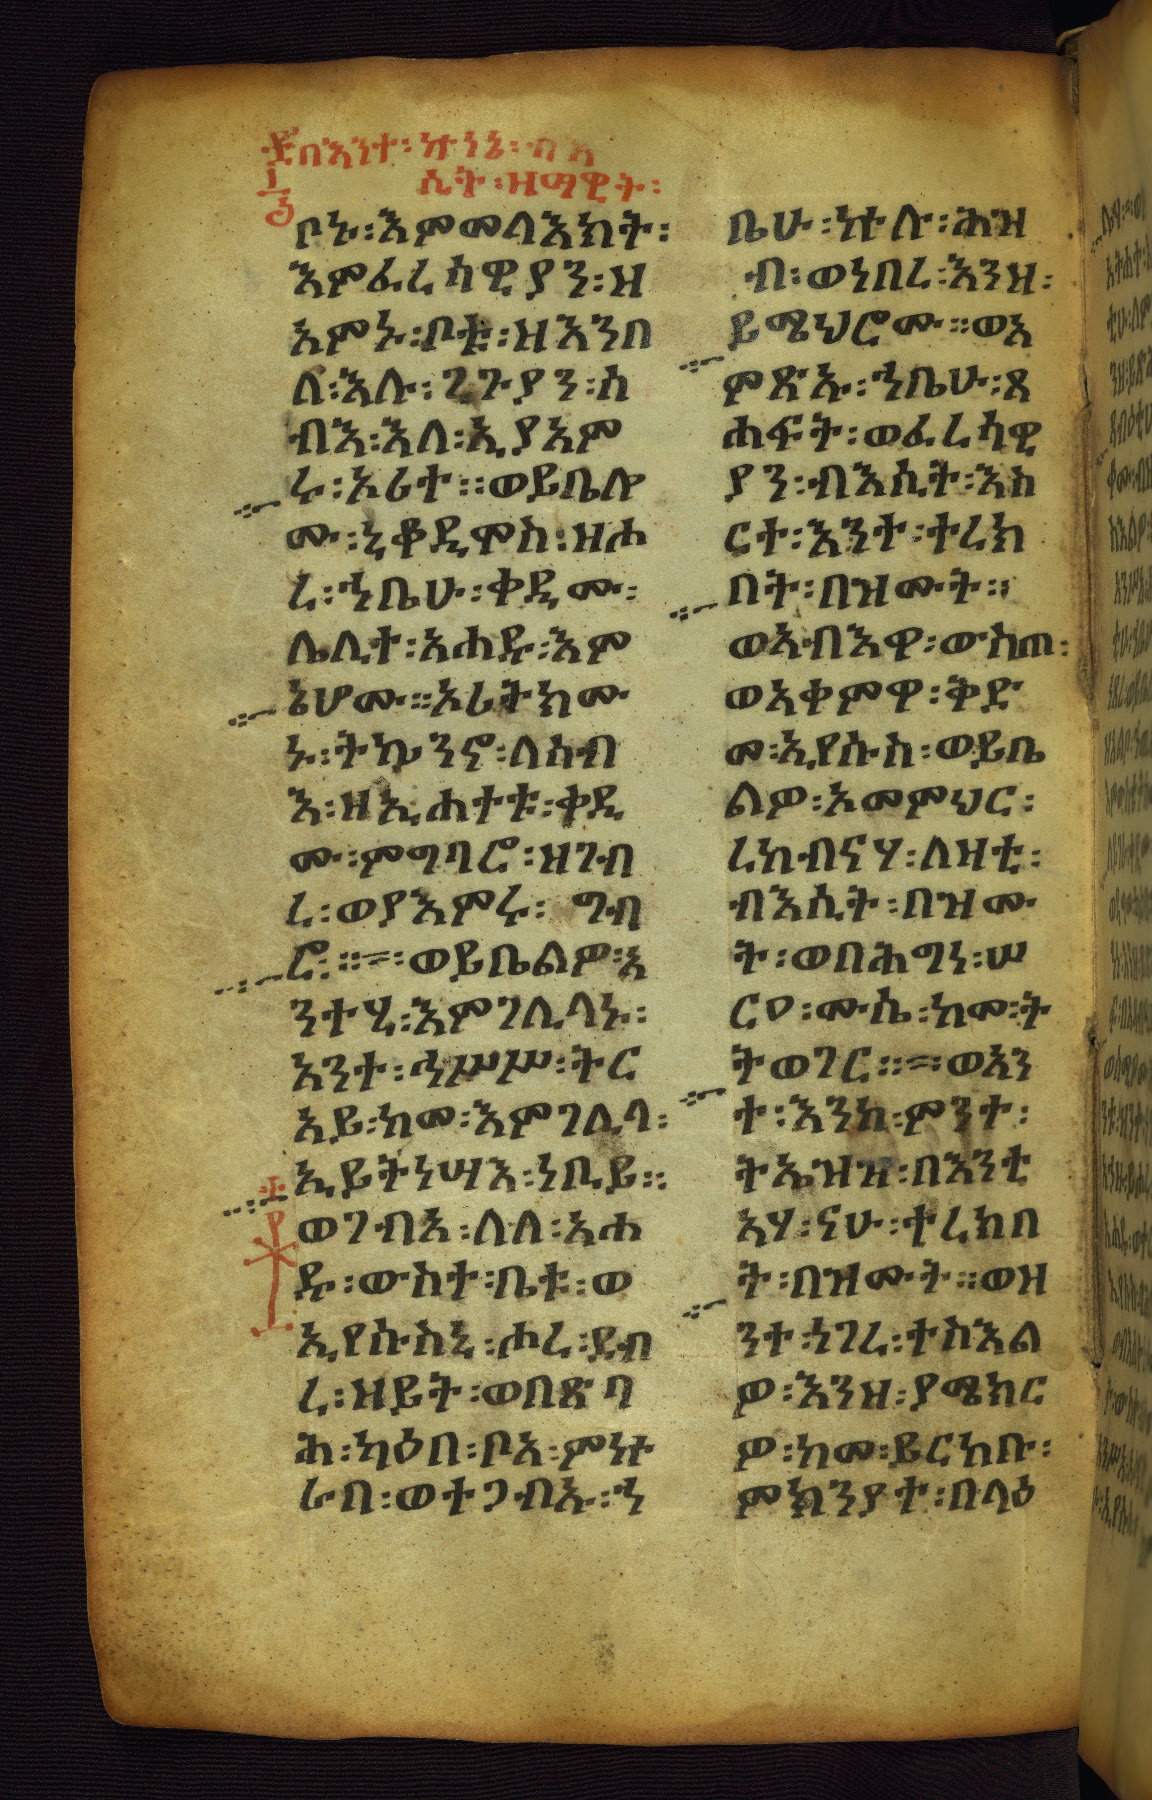 በእንተ፡ ኵነኔ፡ ብእ
ሲት፡ ዘማዊት፡
ቦኑ፡እምመላእክት፡
እምፈሪሳዊያን፡ዘ
አምኑ፡ቦቱ፡ዘእንበ
ለ፡እሉ፡ጊጉያን፡ሰ
ብእ፡እለ፡ኢያአም
ሩ፡አሪተ፡፡ወይቤሎ
ሙ፡ኒቆዲሞስ፡ዘሖ
ረ፡ኀቤሁ፡ቀዲሙ፡
ሌሊተ፡አሐዱ፡እም
ኔሆሙ፡፡አሪትክሙ
ኑ፡ትኴንኖ፡ለሰብ
እ፡ዘኢሐተቱ፡ቀዲ
ሙ፡ምግባሮ፡ዘገብ
ረ፡ወያእምሩ፡ ግብ
ሮ፡፡፡=፡ወይቤልዎ፡አ
ንተሂ፡እምገሊላኑ፡
አንተ፡ኅሥሥ፡ትር
አይ፡ከመ፡እምገሊላ፡
ኢይትነሣእ፡ነቢይ፡፡
ወገብአ፡ለለ፡አሐ
ዱ፡ውስተ፡ቤቱ፡ወ
ኢየሱስኒ፡ሖረ፡ደብ
ረ፡ዘይት፡ወበጽባ
ሕ፡ካዕበ፡ቦአ፡ምኵ
ራበ፡ወተጋብኡ፡ኀ
ቤሁ፡ኵሉ፡ሕዝ
ብ፡ወነበረ፡እንዘ፡
ይሜህሮሙ፡፡ወአ
ምጽኡ፡ኀቤሁ፡ጸ
ሐፍት፡ወፈሪሳዊ
ያን፡ብእሲት፡እስ
ርተ፡እንተ፡ተረክ
በት፡በዝሙት፡፡
ወአብእዋ፡ውስጠ፡
ወአቀምዋ፡ቅድ
መ፡ኢየሱስ፡ወይቤ
ልዎ፡አመምህር፡
ረከብናሃ፡ለዛቲ፡
ብእሲት፡በዝሙ
ት፡ወበሕግነ፡ሠ
ርዐ፡ሙሴ፡ከመ፡ት
ትወገር፡፡=፡ወአን
ተ፡እንከ፡ምንተ፡
ትኤዝዝ፡በእንቲ
አሃ፡ናሁ፡ተረክበ
ት፡በዝሙት፡፡ወዘ
ንተ፡ነገረ፡ተስእል
ዎ፡እንዘ፡ያሜክር
ዎ፡ከመ፡ይርከቡ፡
ምክንያተ፡በላዕ